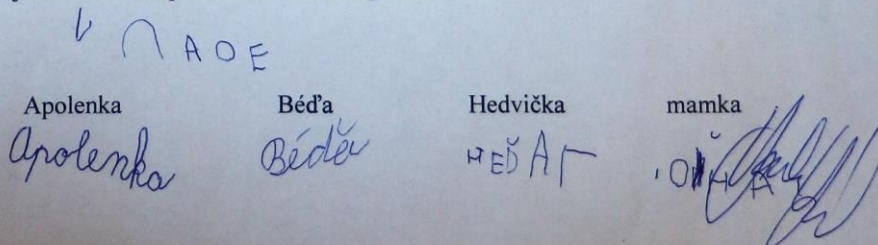 A O E
Apolenka Béďa Hedvička mamka
Apolenka Béďa HEĎA